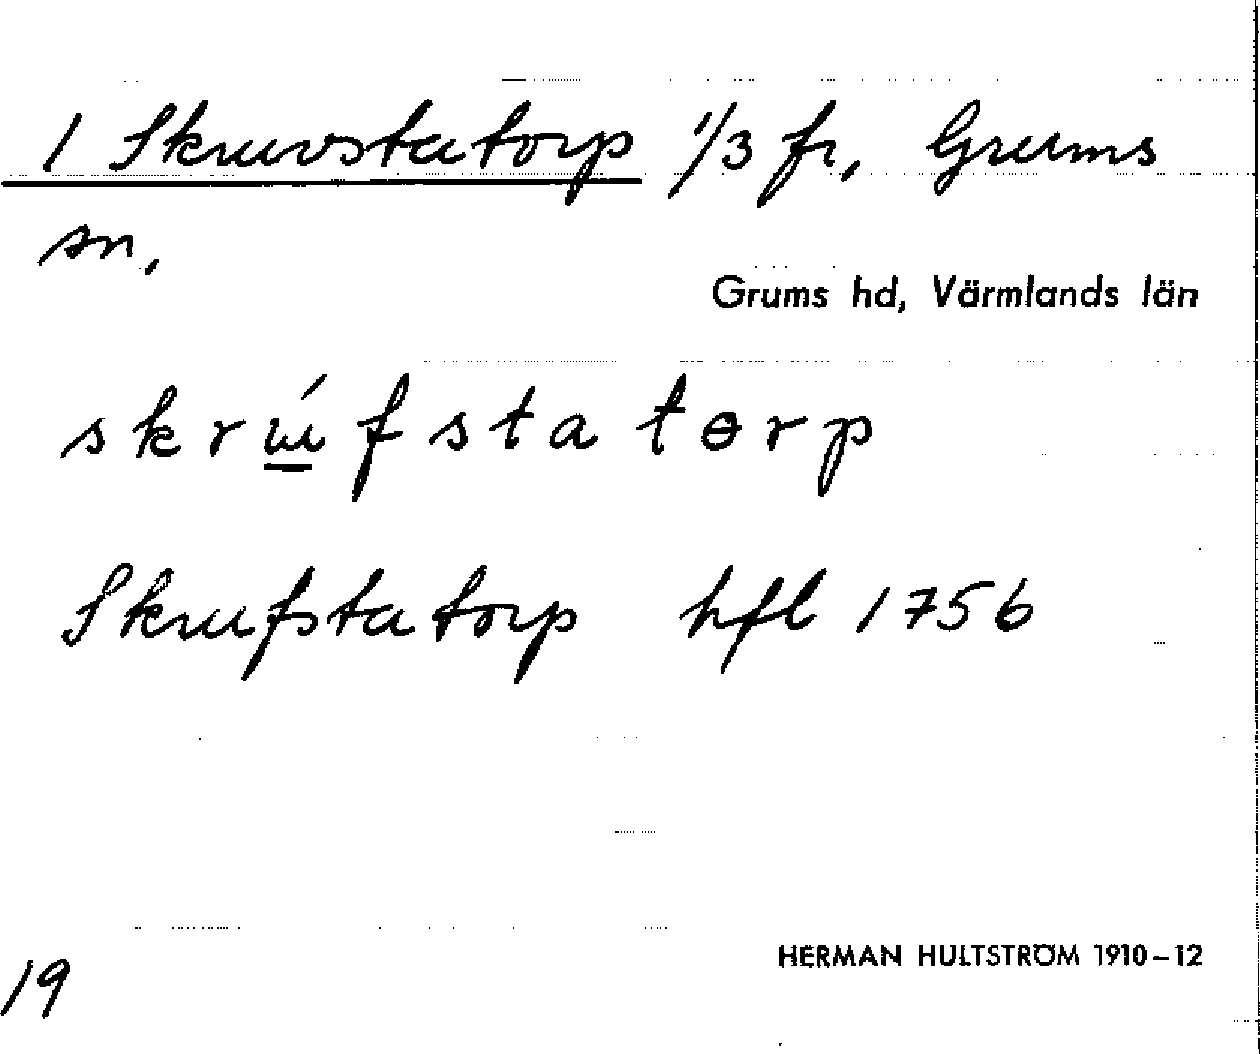 1 Skruvstatorp 1/3 fr, Grums
sn,
Grums hd, Värmlands län
skrúfsta torp
Skrufsta torp hfl 1756
HERMAN HULTSTRÖM 1910–12
19